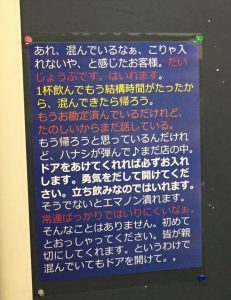 あれ、混んでいるなぁ、こりゃ入
れないや、と感じたお客様。だい
じょうぶです。はいれます。
1杯飲んでもう結構時間がたったか
ら、混んできたら帰ろう。
もうお勘定済んでいるだけれど、
たのしいからまだ話している。
もう帰ろうと思っているんだけれ
ど、ハナシが弾んで♪まだ店の中。
ドアをあけてくれれば必ずお入れ
します。勇気をだして開けてくだ
さい。立ち飲みなのではいれます。
そうでないとエマノン潰れます。
常連ばっかりではいりにくいなぁ。
そんなことはありません。初めて
とおっしゃってください。皆が親
切にしてくれます。というわけで
混んでいてもドアを開けて。。